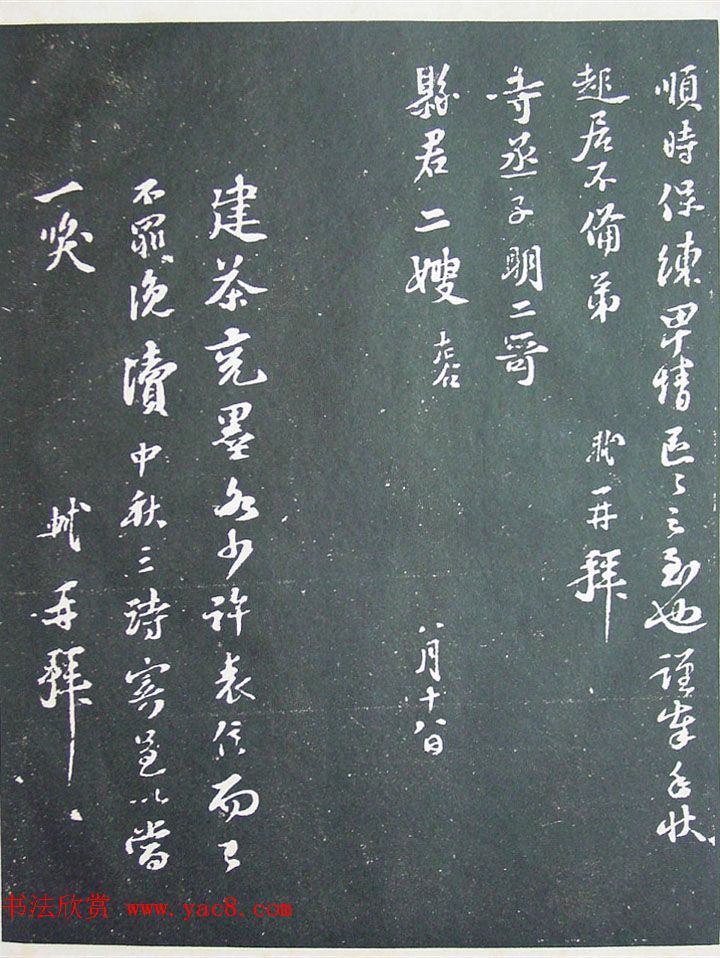 順時保練卑情區々之至也謹奉手狀
起居不備弟 軾再拜
寺丞子明二哥
縣君二嫂 八月十八日
建茶兖墨各少許表信而已
不罪浼瀆中秋三詩寄呈以當
一笑 軾再拜
书法欣赏 www.yac8.com